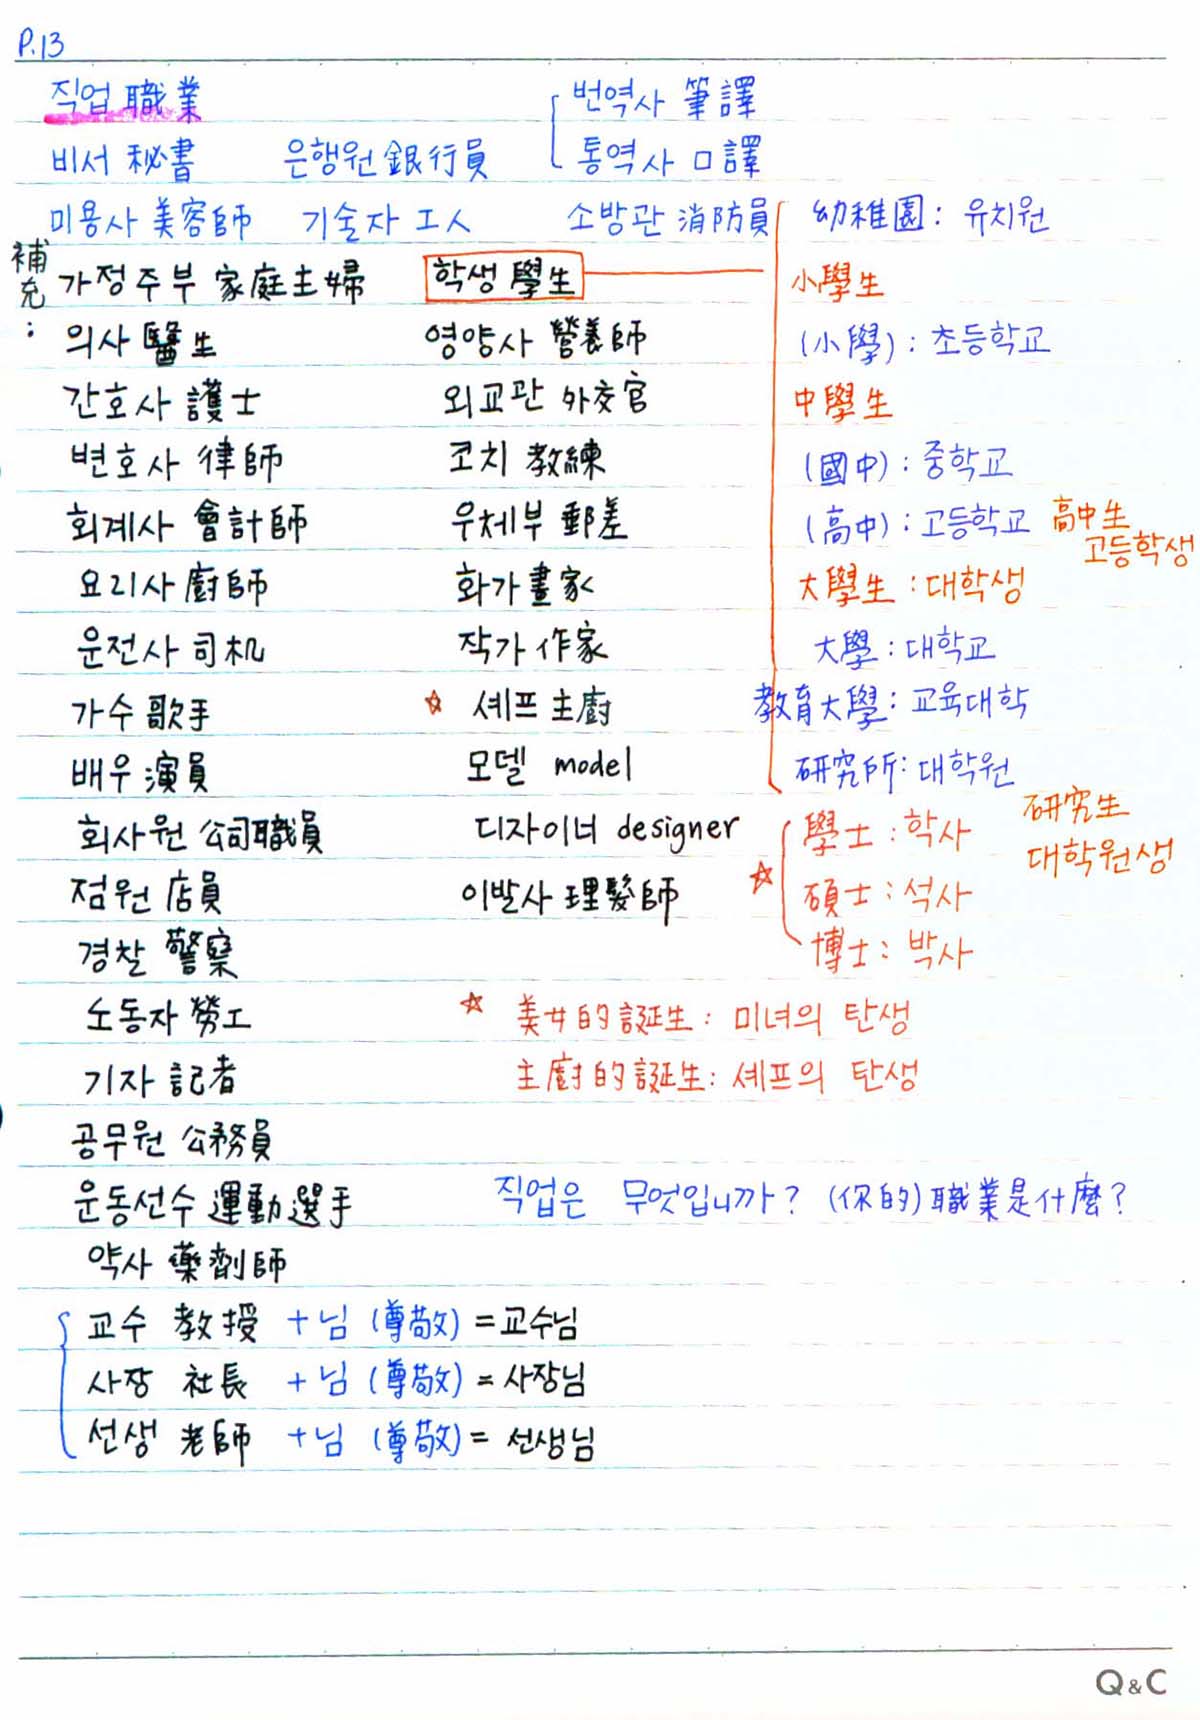 P.13
직업 職業
번역사 筆譯
비서 秘書 은행원 銀行員 통역사 口譯
미용사 美容師 기술자 工人 소방관 消防員
補充:
가정주부 家庭主婦 학생 學生
의사 醫生 영양사 營養師
간호사 護士 외교관 外交官
변호사 律師 코치 教練
회계사 會計師 우체부 郵差
요리사 廚師 화가 畫家
운전사 司机 작가 作家
가수 歌手 ☆ 셰프 主廚
배우 演員 모델 model
회사원 公司職員 디자이너 designer
점원 店員 이발사 理髮師
경찰 警察
노동자 勞工
기자 記者
공무원 公務員
운동선수 運動選手
약사 藥劑師
교수 教授 + 님 (尊敬) = 교수님
사장 社長 + 님 (尊敬) = 사장님
선생 老師 + 님 (尊敬) = 선생님
幼稚園: 유치원
小學生
(小學): 초등학교
中學生
(國中): 중학교
(高中): 고등학교 高中生
고등학생
大學生: 대학생
大學: 대학교
教育大學: 교육대학
研究所: 대학원
研究生
대학원생
☆ 學士: 학사
碩士: 석사
博士: 박사
☆ 美女的誕生: 미녀의 탄생
主廚的誕生: 셰프의 탄생
직업은 무엇입니까? (你的) 職業是什麼?
Q&C